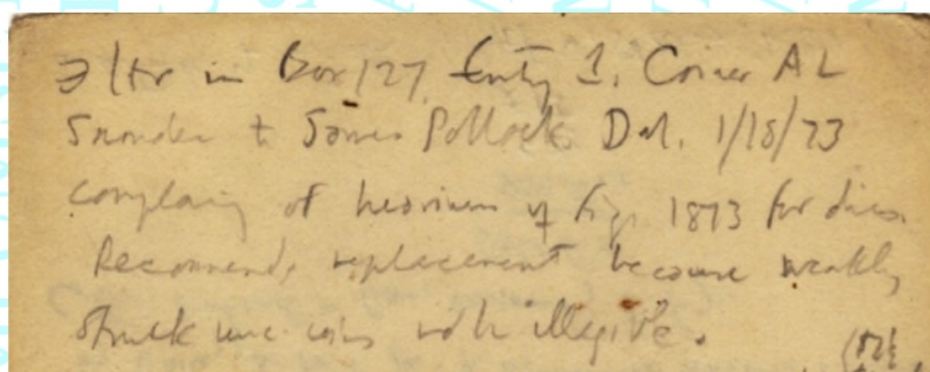 ∃ ltr in Box 127, Entry 1. Coiner A L
Snowden to James Pollock Dat. 1/18/73
complaing of heaviness of figs 1873 for dies.
Recommends replacement because weakly
struck unc coins illegible.